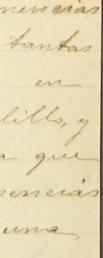 nencias
tantas
en
lillo, y
a que
nencias
una